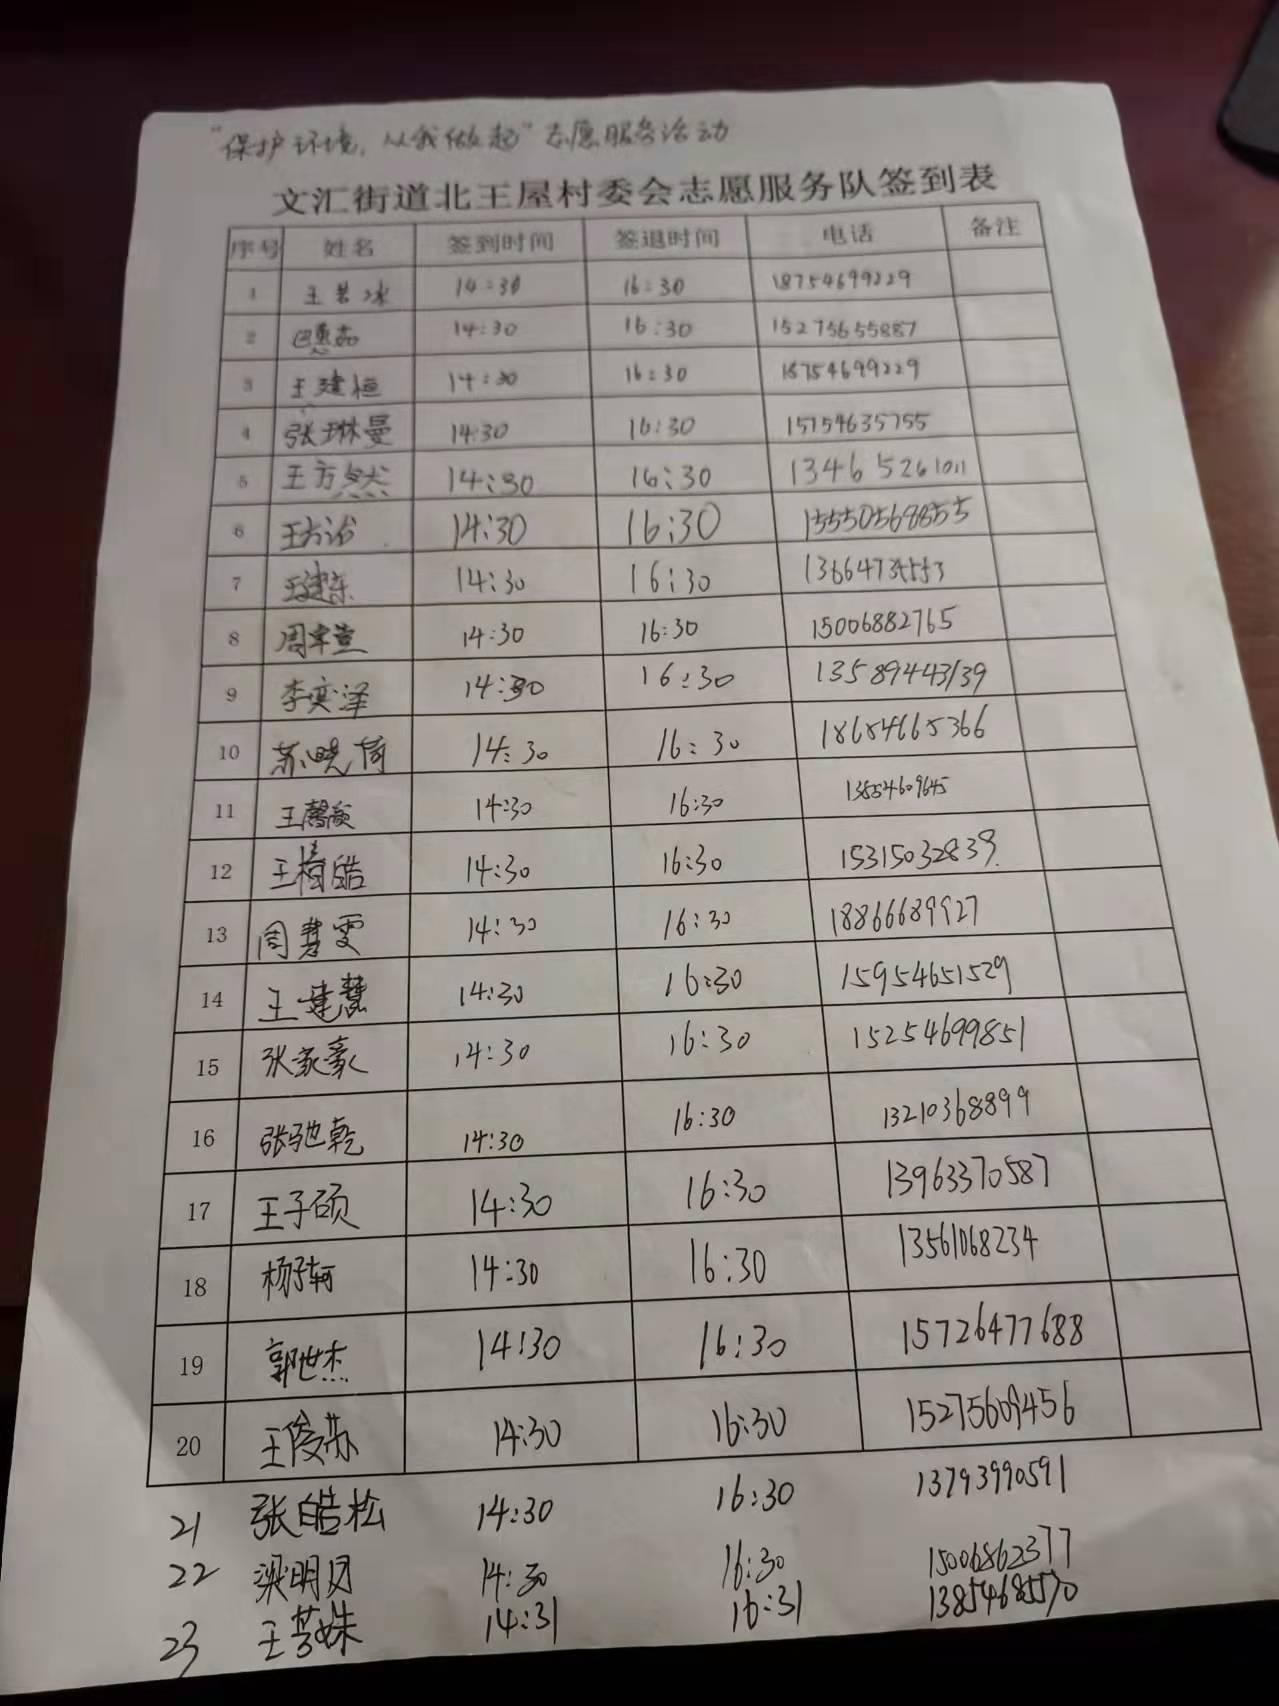 “保护环境，从我做起”志愿服务活动
文汇街道北王屋村委会志愿服务队签到表
序号 姓名 签到时间 签退时间 电话 备注
1 王若冰 14:30 16:30 18754699229
2 巴惠茹 14:30 16:30 15275655887
3 王建恒 14:30 16:30 18754699229
4 张琳曼 14:30 16:30 15154635755
5 王方然 14:30 16:30 13465261011
6 王方 14:30 16:30 15550568855
7 王建东 14:30 16:30
8 周聿萱 14:30 16:30 15006882765
9 李奕泽 14:30 16:30 13589443139
10 苏晓倚 14:30 16:30 18654665366
11 王馨 14:30 16:30 13854609645
12 王梓皓 14:30 16:30 15315032839
13 周慧雯 14:30 16:30 18866689927
14 王建慧 14:30 16:30 15954651529
15 张家豪 14:30 16:30 15254699851
16 张驰乾 14:30 16:30 13210368899
17 王子硕 14:30 16:30 13963370587
18 杨子轲 14:30 16:30 13561068234
19 郭世杰 14:30 16:30 15726477688
20 王俊苏 14:30 16:30 15275609456
21 张皓松 14:30 16:30 13793990591
22 梁明月 14:30 16:30 15006862377
23 王芸姝 14:31 16:31 13854685570